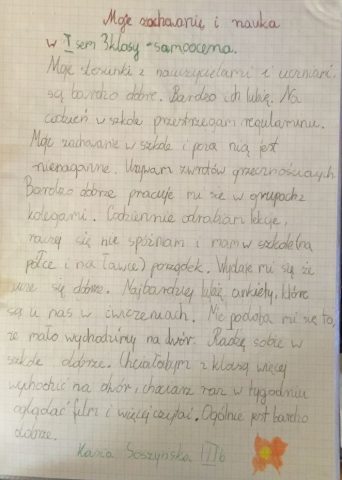 Moje zachowanie i nauka
w I sem 3 klasy - samoocena.
Moje stosunki z nauczycielami i uczniami
są bardzo dobre. Bardzo ich lubię. Na
codzień w szkole przestrzegam regulaminu.
Moje zachowanie w szkole i poza nią jest
nienaganne. Używam zwrotów grzecznościowych.
Bardzo dobrze pracuje mi się w grupach z
kolegami. Codziennie odrabiam lekcje,
raczej się nie spóźniam i mam w szkolelną
półce i na ławce) porządek. Wydaje mi się że
uczę się dobrze. Najbardziej lubię ankiety, które
są u nas w ćwiczeniach. Nie podoba mi się to,
że mało wychodzimy na dwór. Radzę sobie w
szkole dobrze. Chciałabym z klasą więcej
wychodzić na dwór, chociarz raz w tygodniu
oglądać film i więcej czytać. Ogólnie jest bardzo
dobrze.
Kasia Soszyńska III b